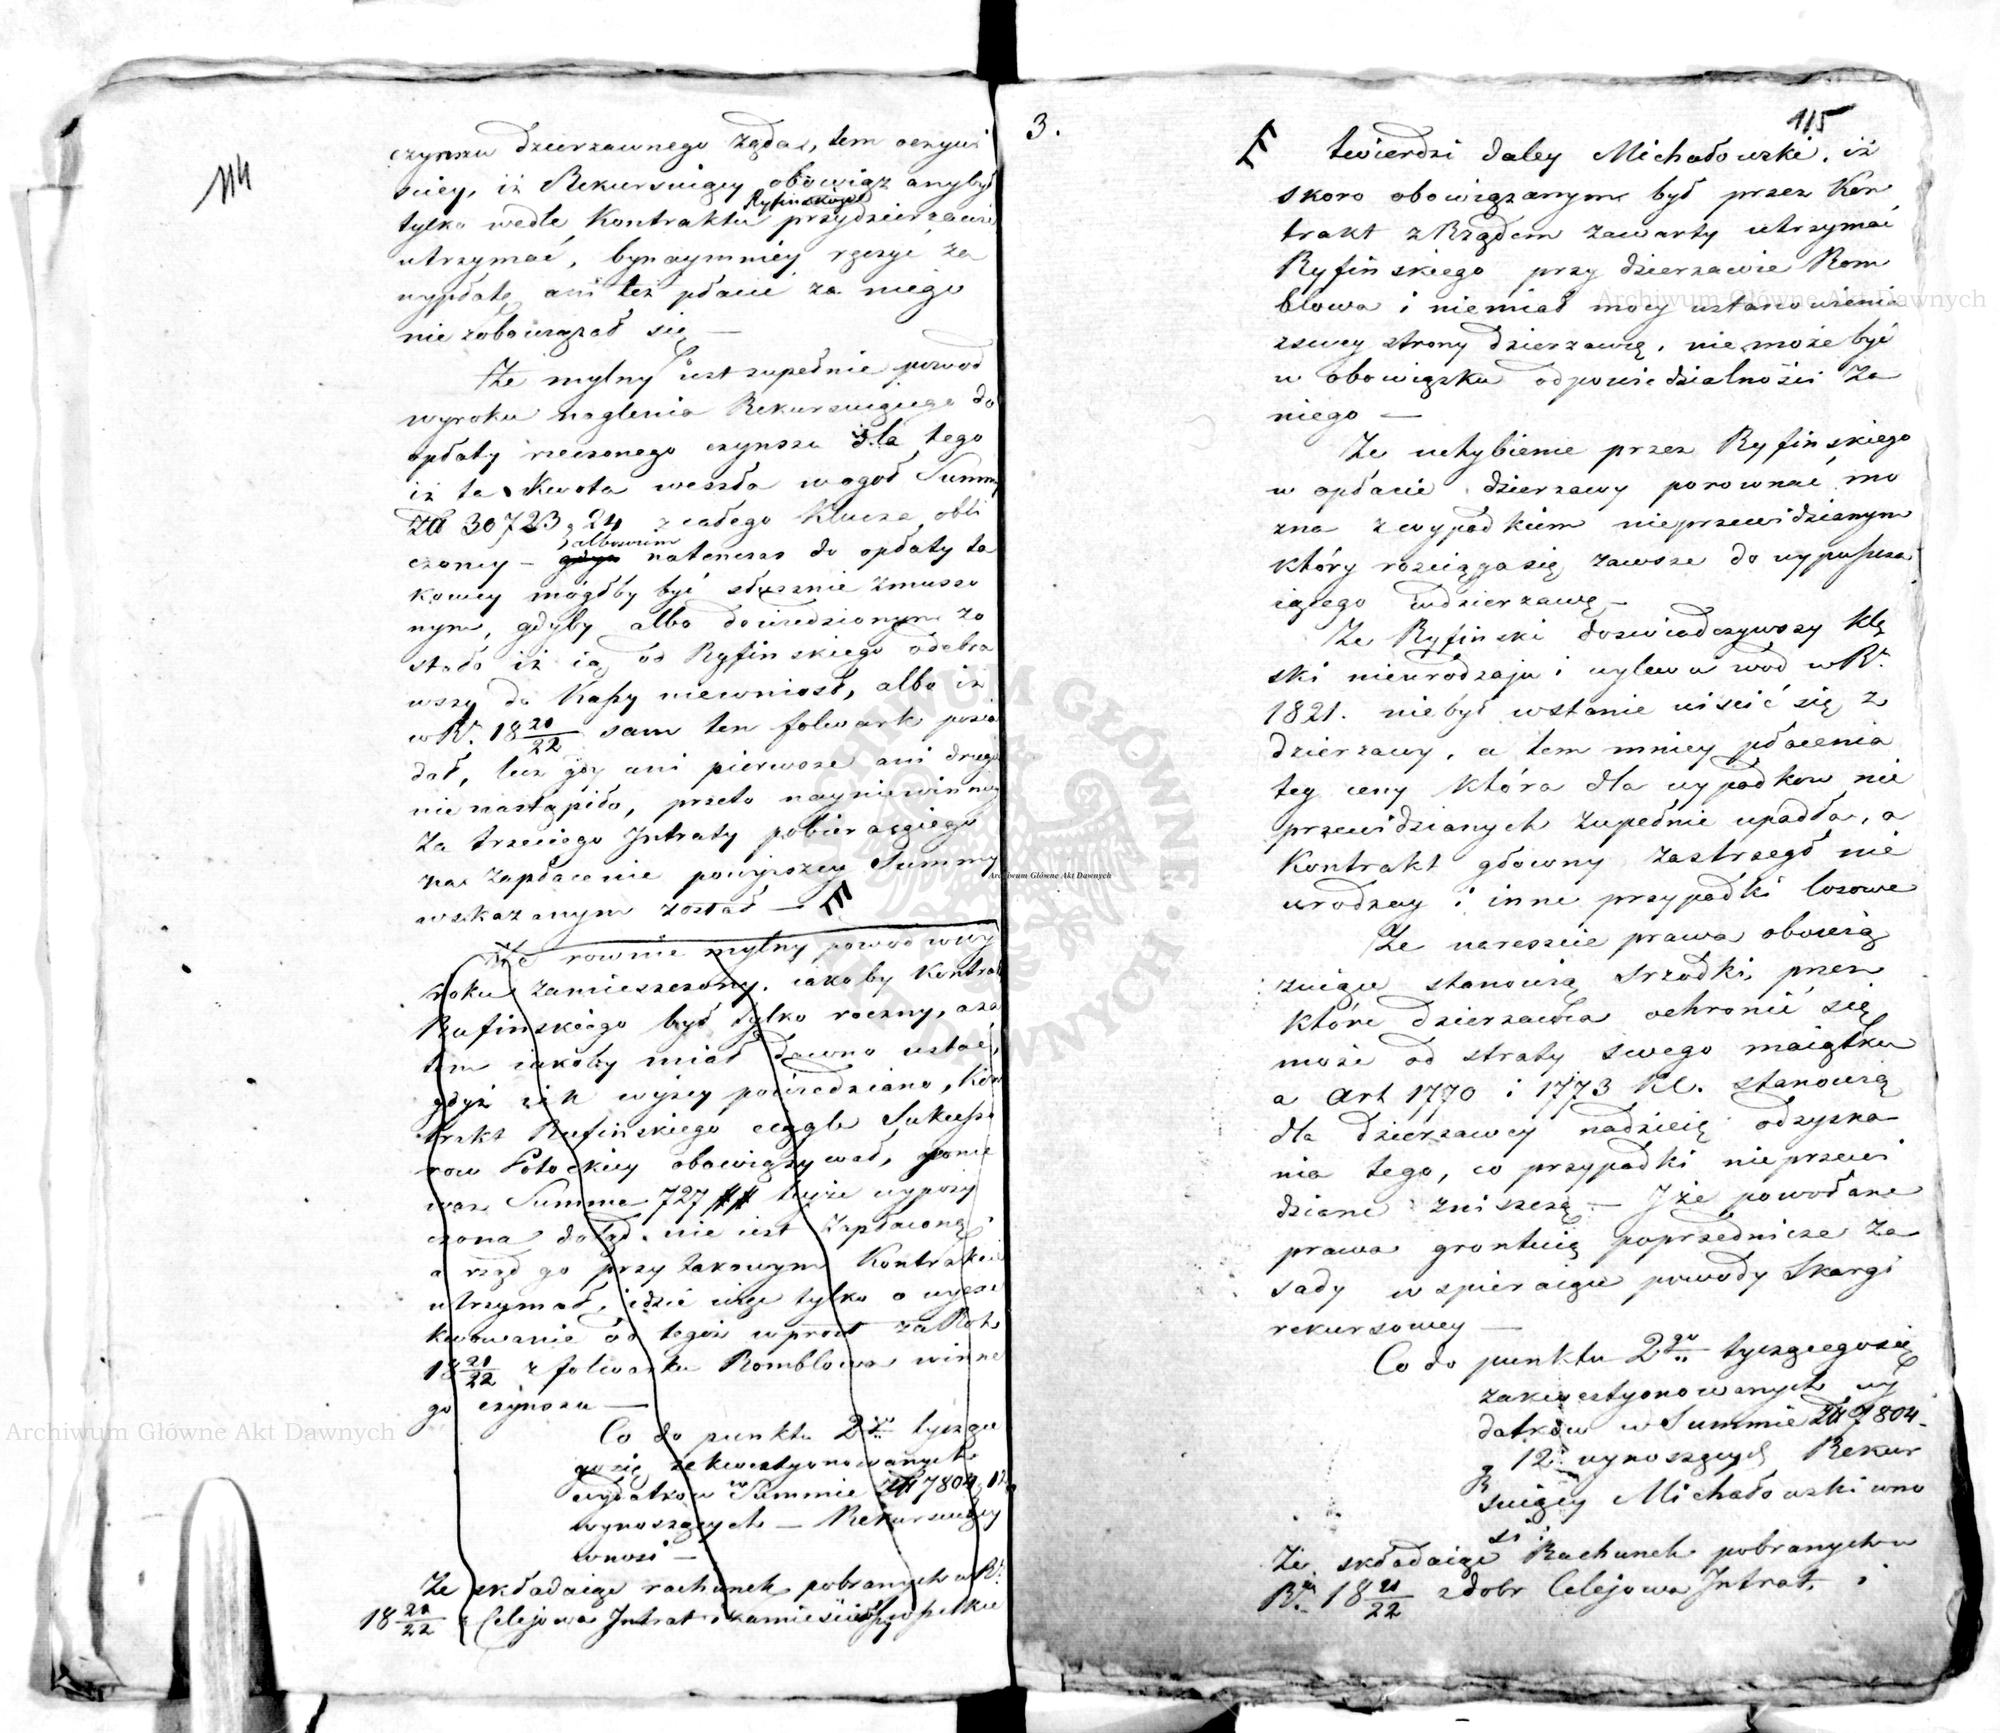 114
czynszu dzierzawnego żądać, tem oczywi
ściey, iż Rekursuiący obowiązanybył
Ryfinskiego
tylko wedle Kontraktu przydzierzawie
utrzymać, bynaymniey ręczyć za
wypłatę ani też płacić za niego
nie zobowiązał się —
Że mylny iest zupełnie powod
wyroku naglenia Rekursuiącego do
opłaty rzeczonego czynszu dla tego
iż ta Kwota weszła wogoł Summy
Zł 30723 g 24 z całego Klucza obli
albowiem
czoney — gdyż natenczas do opłaty ta
kowey mógłby być słusznie zmuszo
nym, gdyby albo dowiedzionym zo
stało iż ią od Ryfinskiego odebra
wszy do Kassy niewniosł, albo iż
w R. 18 21/22 sam ten folwark posia
dał, lecz gdy ani pierwsze ani drugie
nie nastąpiło, przeto nayniewinniey
Za trzeciego Jntraty pobieraiącego
na zapłacenie powyższey Summy
wskazanym został —
Że rownie mylny powod wwy
roku zamieszczony, iakoby Kontrakt
Rufinskiego był tylko roczny, a za
tem iakoby miał dawno ustać,
gdyż iak wyżey powiedziano, Kon
trakt Rufinskiego ciągle Sukcesso
row Potockiey obowiązywał, ponie
waż Summa 727 ## tejże wypoży
czona dotąd nie iest zapłaconą
a rząd go przy takowym Kontrakcie
utrzymał, idzie więc tylko o wyexe
kwowanie od tegoż wprost za Rok
18 21/22 z folwarku Rombłowa winne
go czynszu —
Co do punktu 2go tyczące
gosię zakwestyonowanych
wydatkow w Summie Zł 7804 g 12
wynoszących — Rekursuiący
wnosi —
Że składaiąc rachunek pobranych w R.
18 21/22 z Celejowa Jntrat
3.
115
twierdzi daley Michałowski, iż
skoro obowiązanym był przez Kon
trakt z Rządem zawarty utrzymać
Ryfinskiego przy dzierzawie Rom
błowa i niemiał mocy ustanowienia
zswey strony dzierzawcę, nie może być
w obowiązku odpowiedzialności za
niego —
Że uchybienie przez Ryfinskiego
w opłacie dzierzawy porownać mo
zna z wypadkiem nieprzewidzianym
który rozciągasię zawsze do wypuszcza
iącego wdzierzawę —
Że Ryfinski doswiadczywszy klę
ski nieurodzaju i wylewu wod w R.
1821. niebył wstanie uiścić się z
dzierzawy, a tem mniey płacenia
tey ceny która dla wypadkow nie
przewidzianych zupełnie upadła, a
Kontrakt głowny zastrzegł nie
urodzay i inne przypadki losowe
Że nareszcie prawa obowią
zuiące stanowią srzodki, przez
które dzierzawca ochronić się
może od straty swego maiątku
a Art 1770 i 1773 K.C. stanowią
dla dzierzawcy nadzieię odzyska
nia tego, co przypadki nieprzewi
dziane zniszczą — I że powołane
prawa gruntuią poprzednicze za
sady wspieraiące powody Skargi
rekursowey —
Co do punktu 2go tyczącegosię
zakwestyonowanych wy
datków w Summie Zł 7804
g 12 wynoszących Rekur
suiący Michałowski wno
si
Że składaiąc Rachunek pobranych w
R. 18 21/22 zdobr Celejowa Jntrat, i
Archiwum Główne Akt Dawnych
Archiwum Główne Akt Dawnych
Archiwum Główne Akt Dawnych
ARCHIWUM GŁÓWNE AKT DAWNYCH